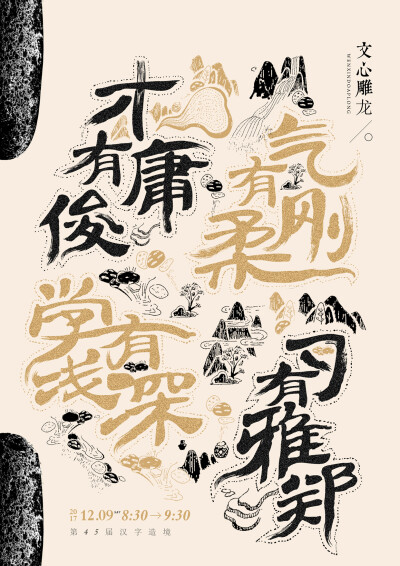 文心雕龙
才有庸俊
气有刚柔
学有浅深
习有雅郑
2017 12.09 8:30→9:30
第45届汉字造境